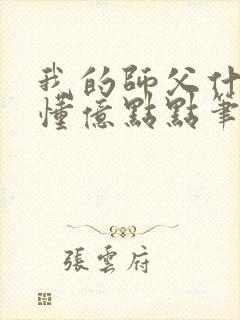 我的師父什
懂億點點筆
張雲府